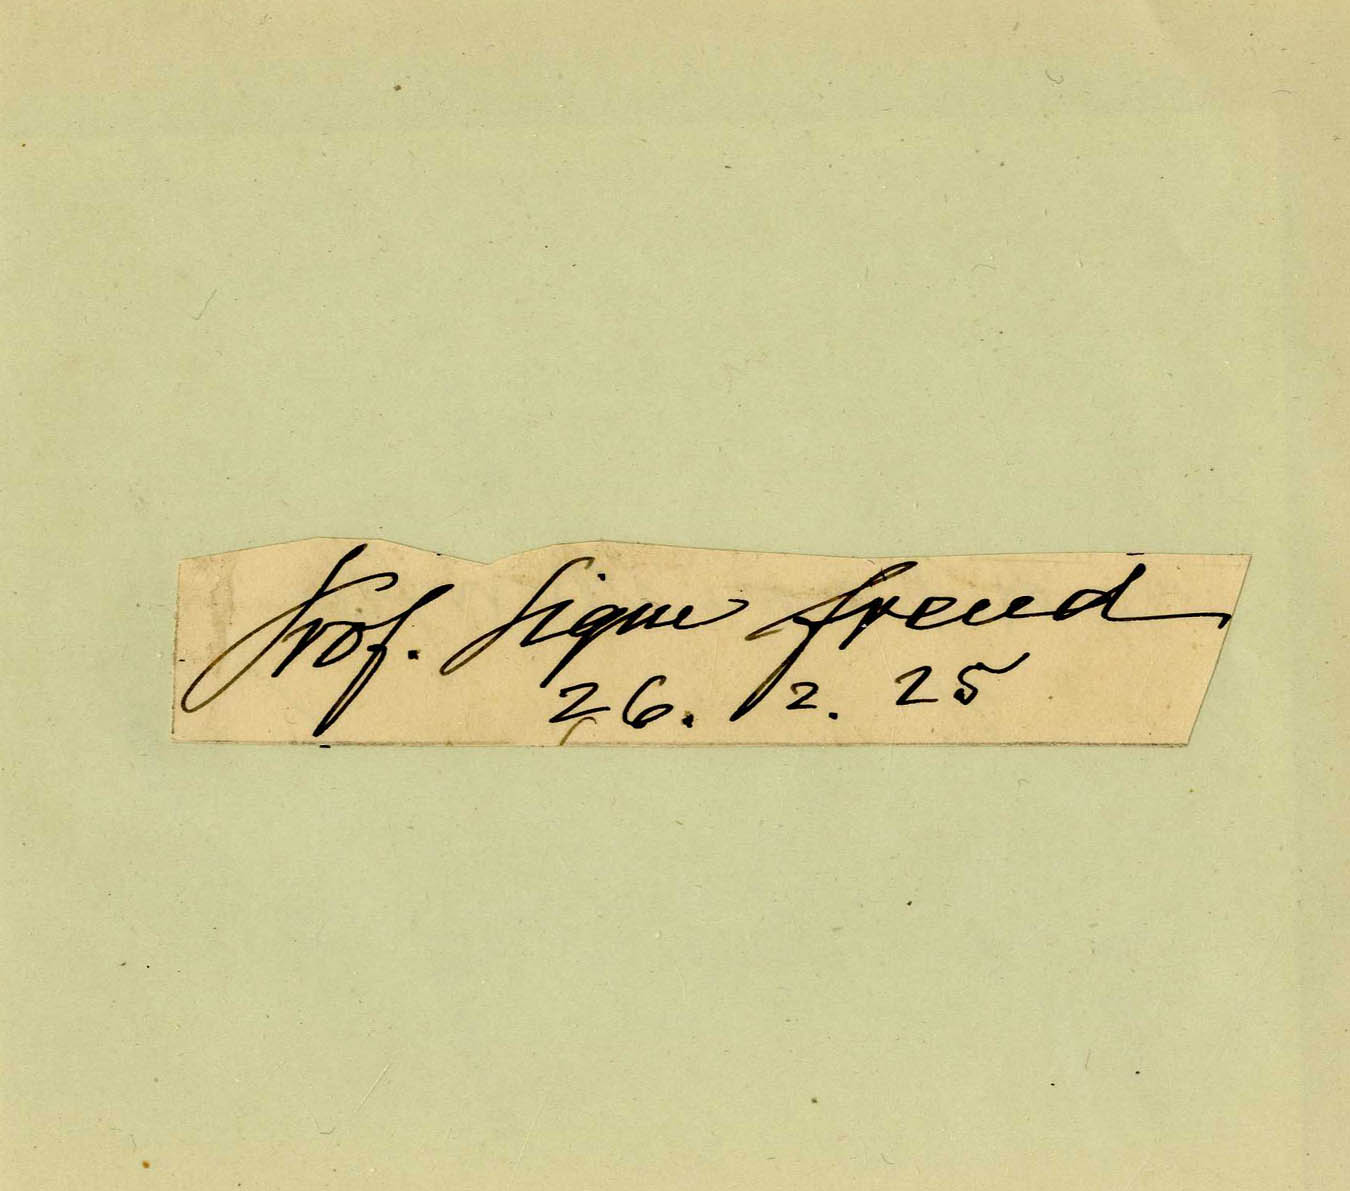 Prof. Sigm Freud
26. 2. 25